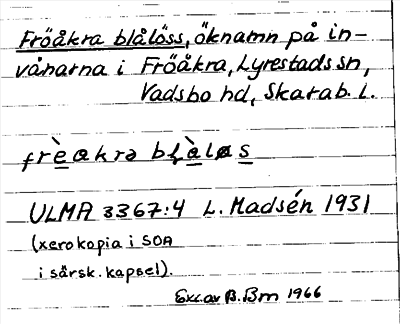 Fröåkra blålöss, öknamn på in-
vånarna i Fröåkra, Lyrestads sn,
Vadsbo hd, Skarab. l.
frèakra blàløs
ULMA 3367:4 L. Madsén 1931
(xerokopia i SOA
i särsk. kapsel).
Exc. av B. Bm 1966